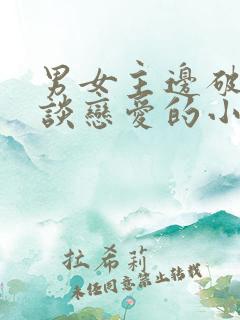 男女主邊破
談戀愛的小
拉希莉
未經同意禁止轉載